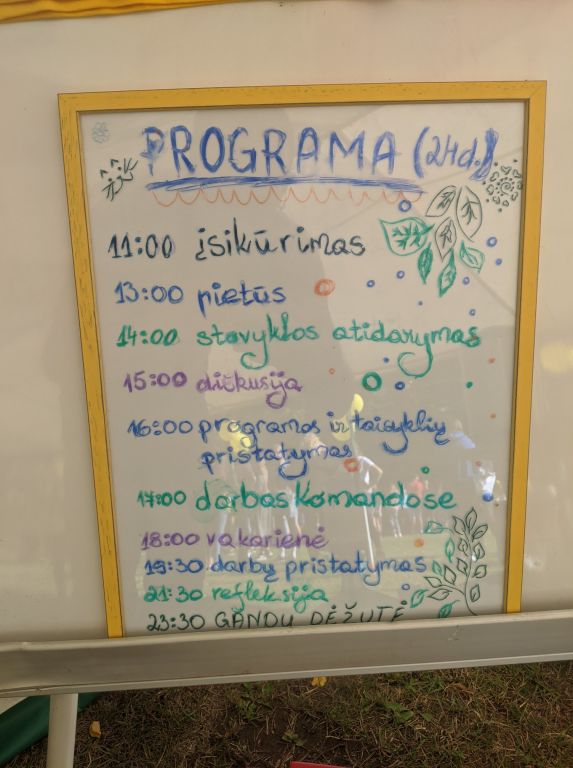 PROGRAMA (24d.)
11:00 įsikūrimas
13:00 pietūs
14:00 stovyklos atidarymas
15:00 diskusija
16:00 programos ir taisyklių
pristatymas
17:00 darbas komandose
18:00 vakarienė
19:30 darbų pristatymas
21:30 refleksija
23:30 GANDŲ DĖŽUTĖ